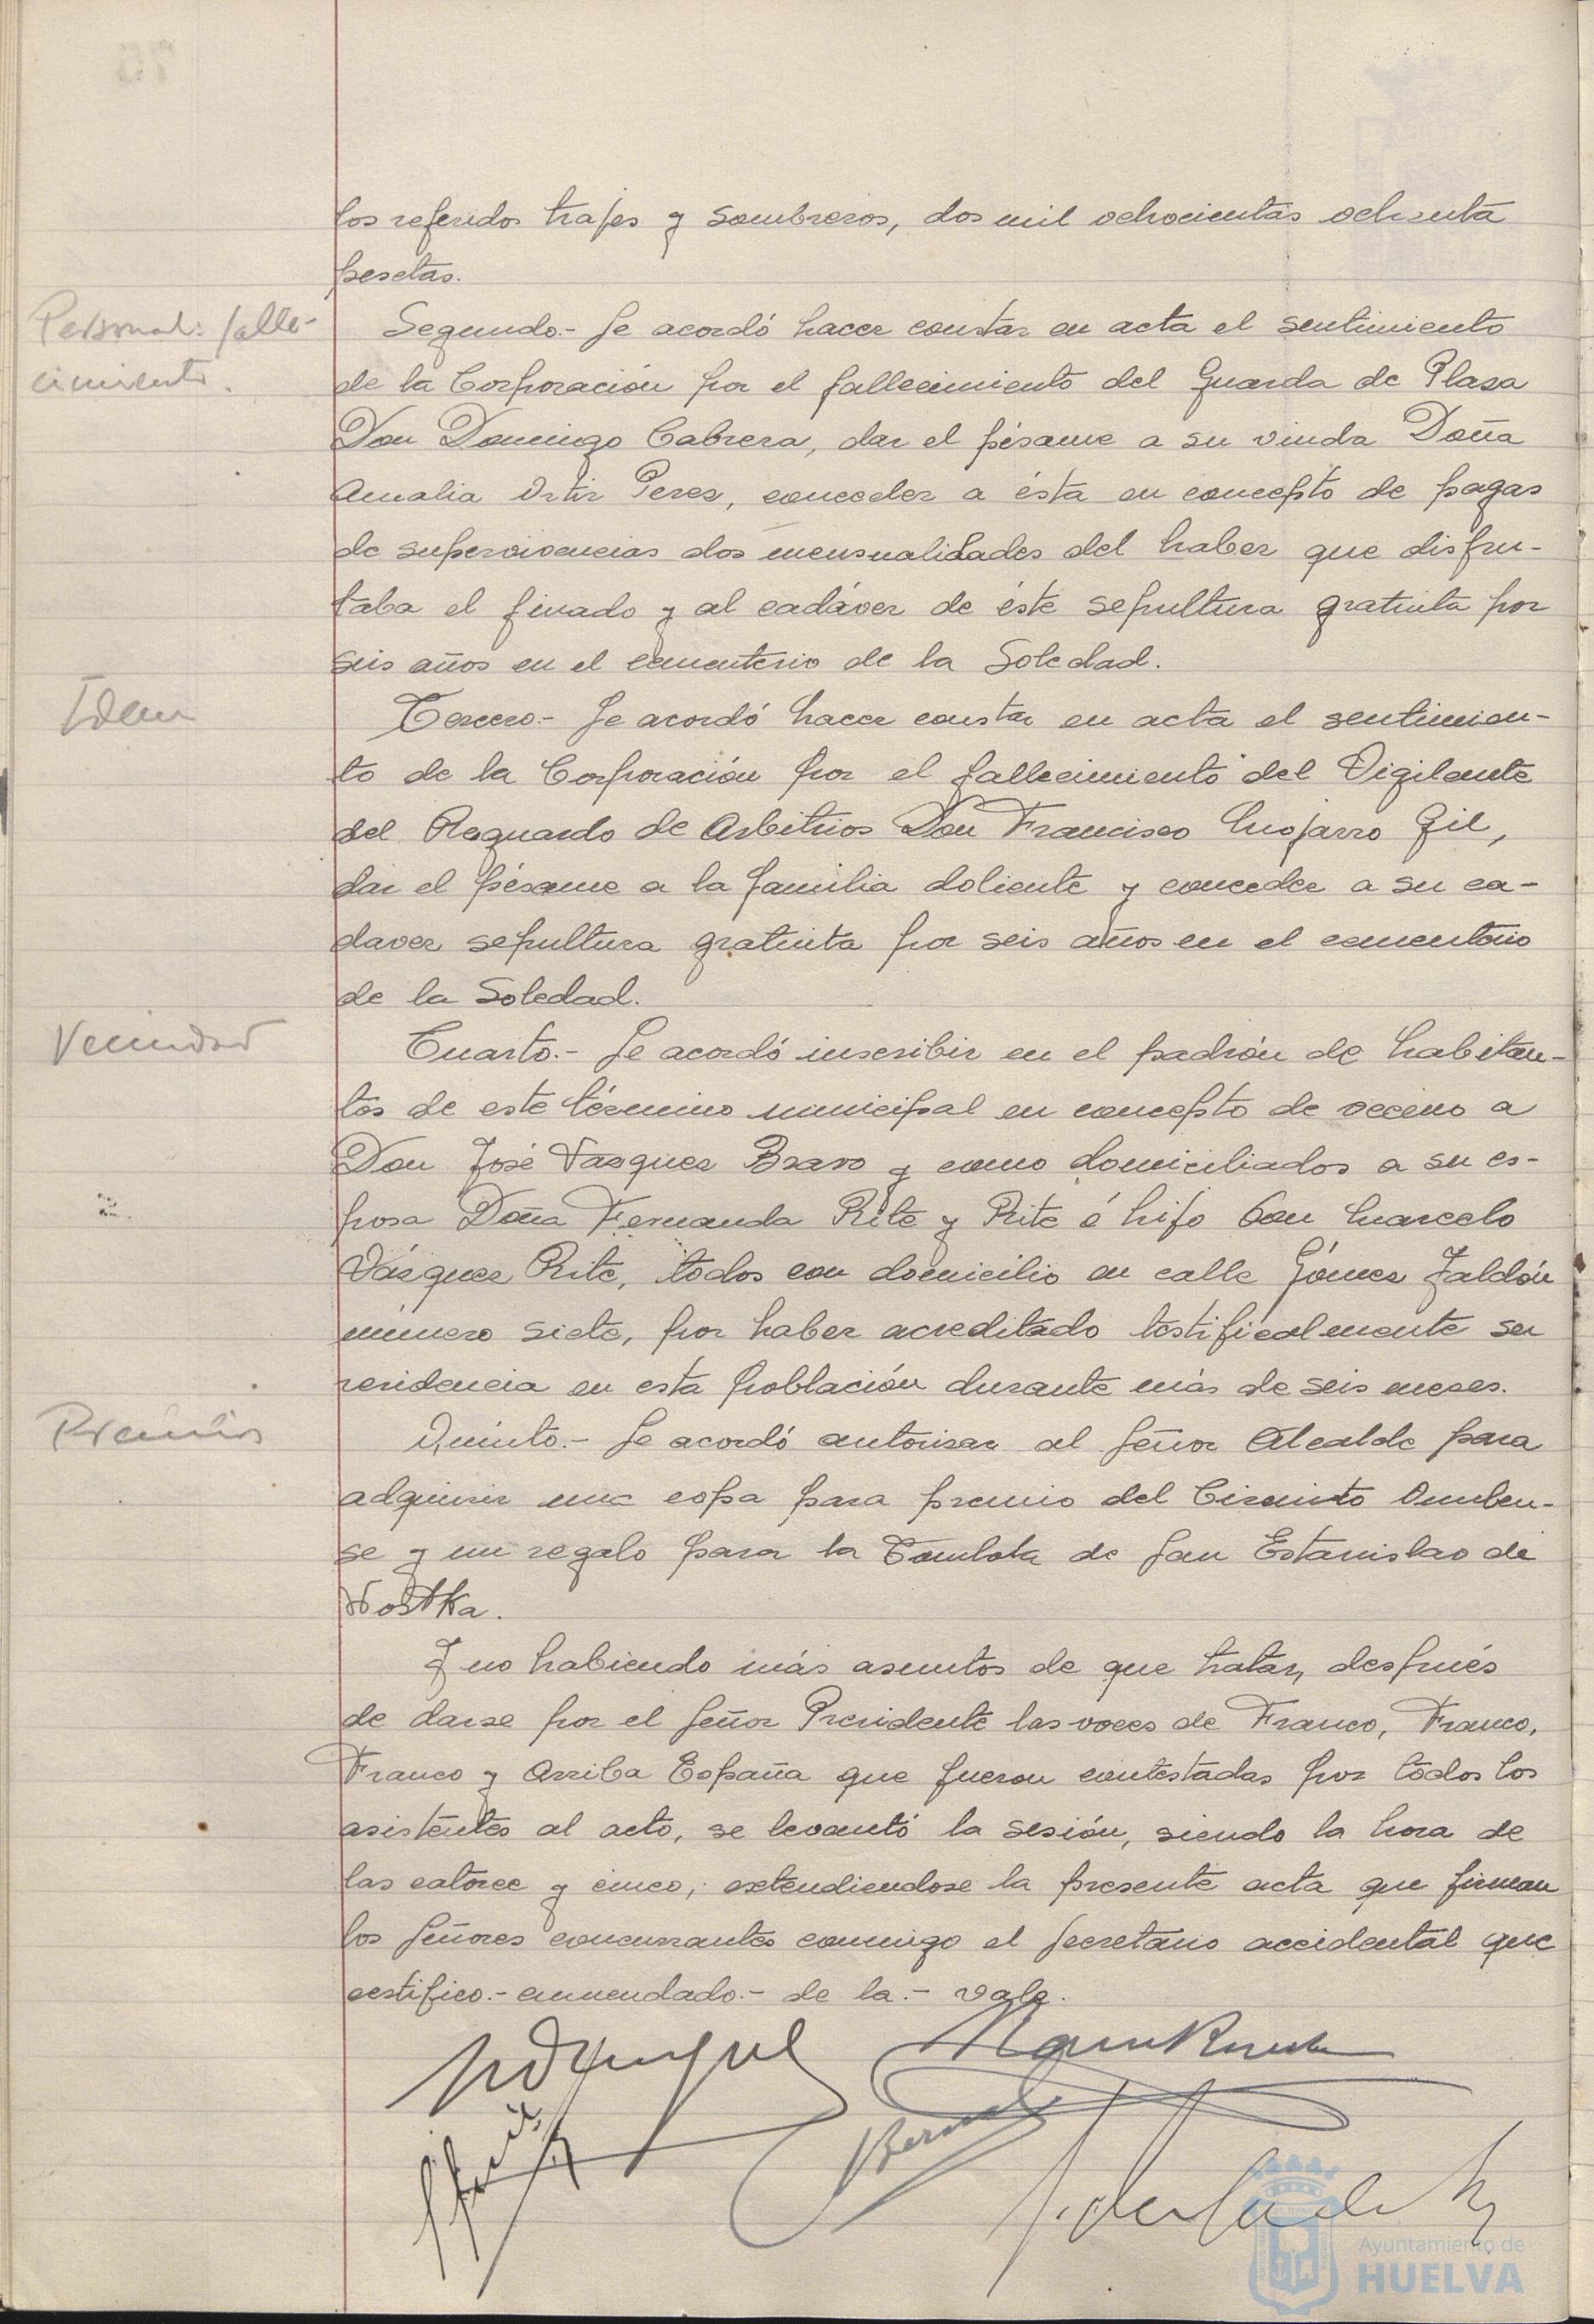 los referidos trajes y sombreros, dos mil ochocientas ochenta
pesetas.
Personal: falle-
cimiento.
Segundo.- Se acordó hacer constar en acta el sentimiento
de la Corporación por el fallecimiento del Guarda de Plaza
Don Domingo Cabrera, dar el pésame a su viuda Doña
Amalia Ortiz Perez, conceder a ésta en concepto de pagas
de supervivencias dos mensualidades del haber que disfru-
taba el finado y al cadáver de éste sepultura gratuita por
seis años en el cementerio de la Soledad.
Idem
Tercero.- Se acordó hacer constar en acta el sentimien-
to de la Corporación por el fallecimiento del Vigilante
del Resguardo de Arbitrios Don Francisco Mojarro Gil,
dar el pésame a la familia doliente y conceder a su ca-
daver sepultura gratuita por seis años en el cementerio
de la Soledad.
Vecindad
Cuarto.- Se acordó inscribir en el padrón de habitan-
tes de este término municipal en concepto de vecino a
Don José Vazquez Bravo y como domiciliados a su es-
posa Doña Fernanda Rite y Rite é hijo Don Marcelo
Vázquez Rite, todos con domicilio en calle Gómez Jaldón
número siete, por haber acreditado testificalmente su
residencia en esta población durante más de seis meses.
Premios
Quinto.- Se acordó autorizar al Señor Alcalde para
adquirir una copa para premio del Circuito Onuben-
se y un regalo para la Tombola de San Estanislao de
Kostka.
Y no habiendo más asuntos de que tratar, después
de darse por el Señor Presidente las voces de Franco, Franco,
Franco y Arriba España que fueron contestadas por todos los
asistentes al acto, se levantó la sesión, siendo la hora de
las catorce y cinco, extendiendose la presente acta que firman
los Señores concurrantes conmigo el Secretario accidental que
certifico.- enmendado.- de la.- vale.
Bernal
Ayuntamiento de
HUELVA